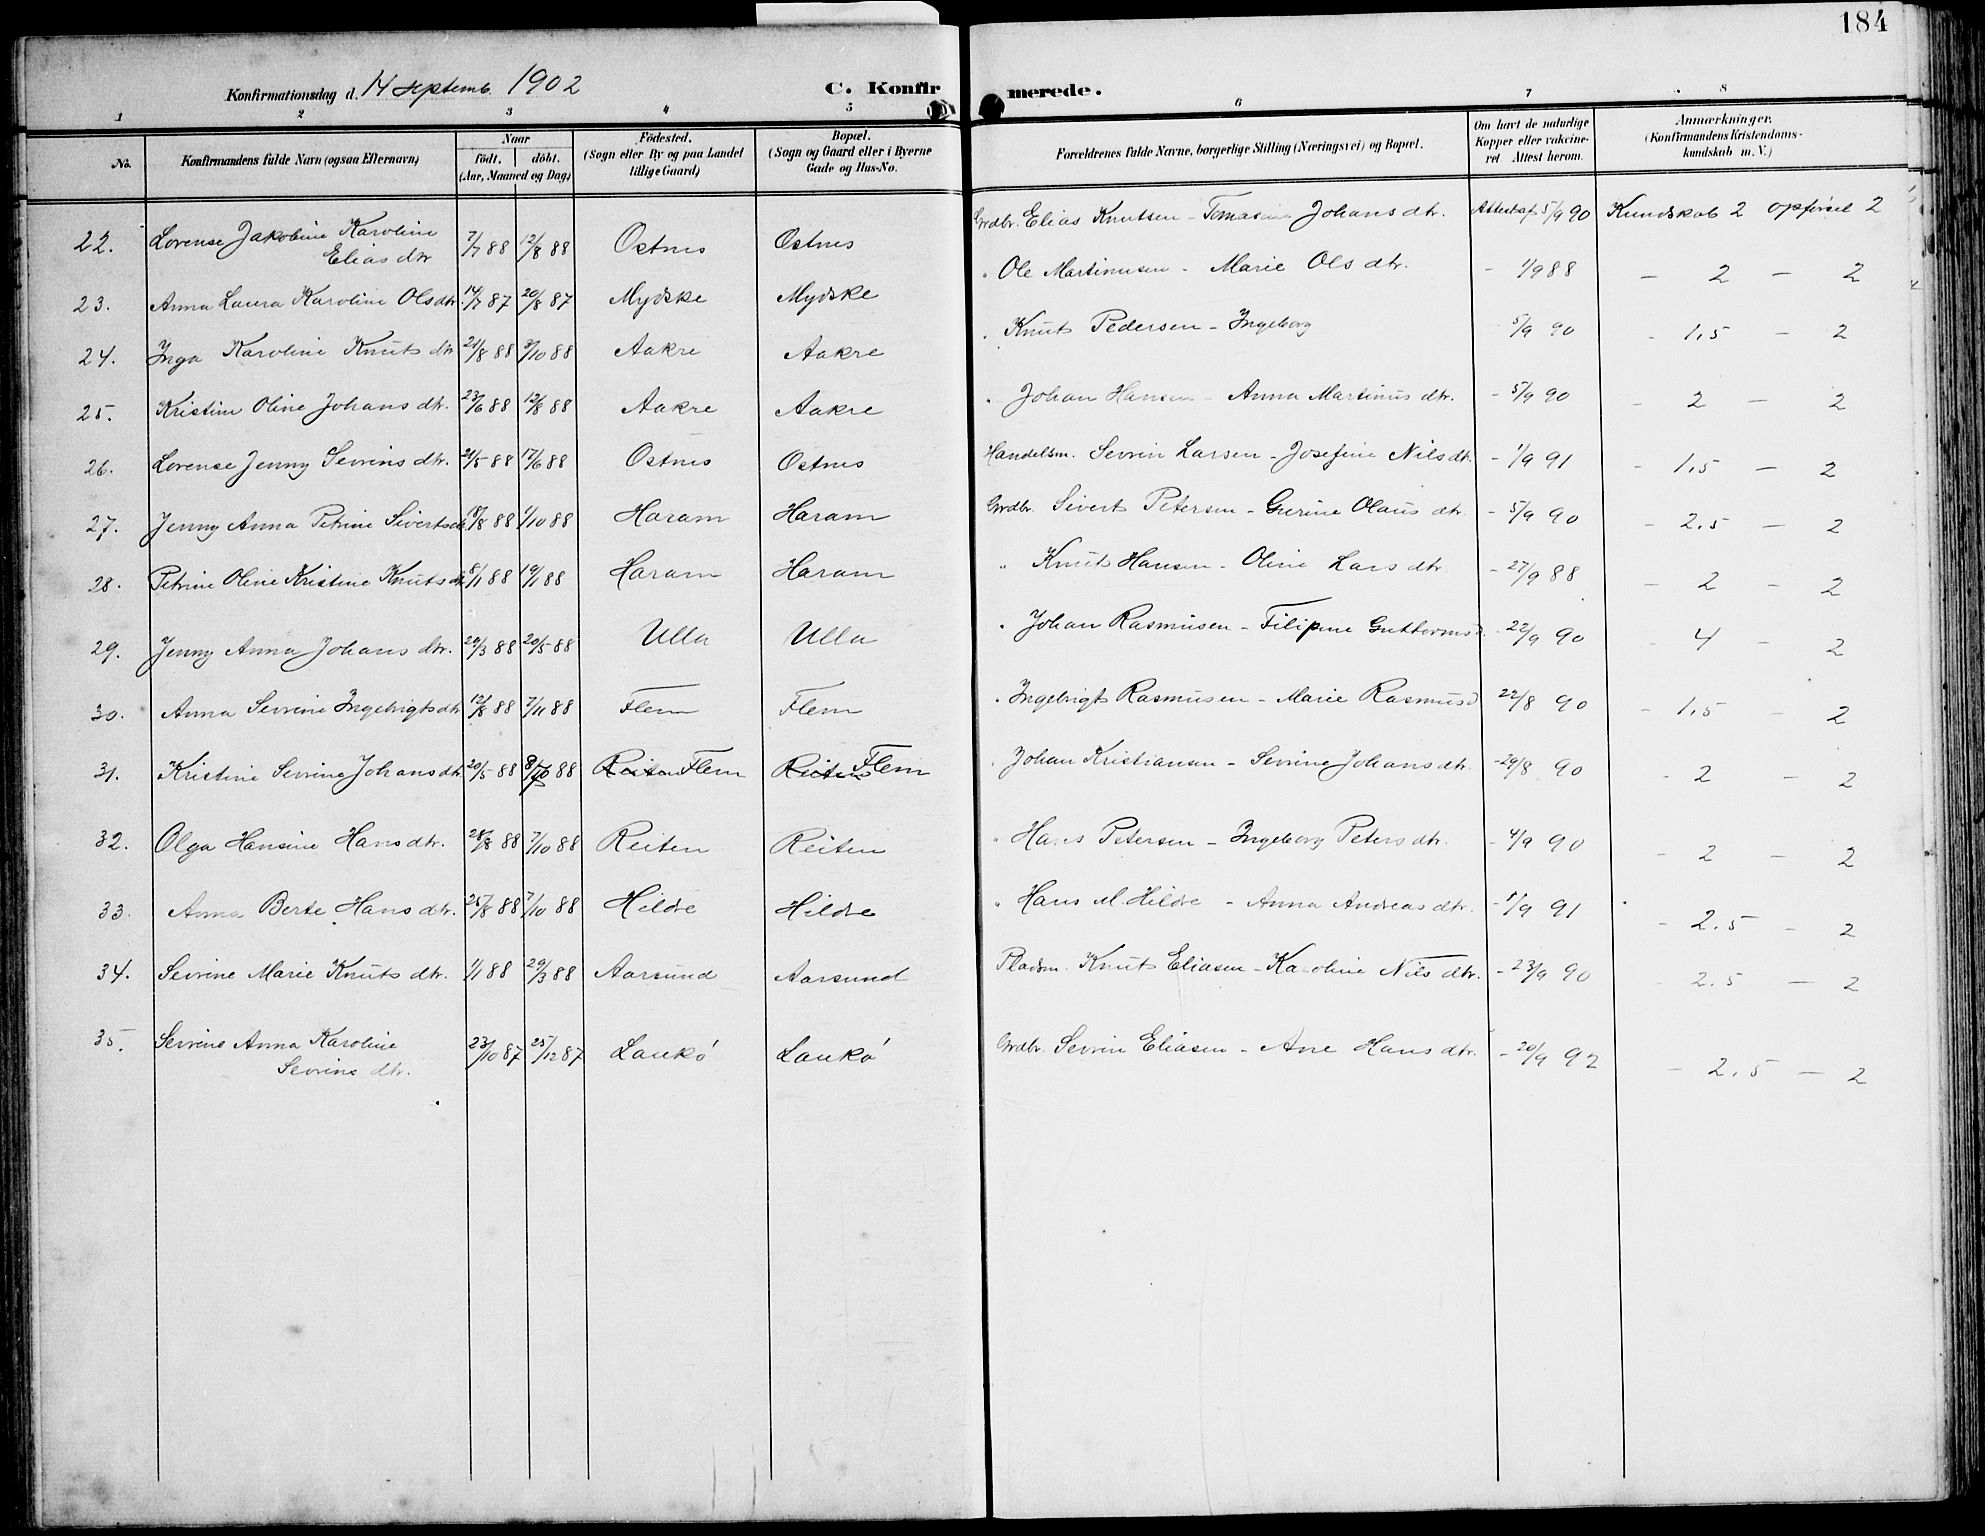 184
Konfirmationsdag d. 14 septemb. 1902 C. Konfirmerede.
1 2 3 4 5 6 7 8
No. Konfirmandens fulde Navn (ogsaa Efternavn) Naar födt. döbt. (Aar, Maaned og Dag) Födested. (Sogn eller By og paa Landet tillige Gaard) Bopæl. (Sogn og Gaard eller i Byerne Gade og Hus-No. Forældrenes fulde Navne, borgerlige Stilling (Næringsvei) og Bopæl. Om havt de naturlige Kopper eller vakcineret Attest herom. Anmærkninger. (Konfirmandens Kristendomskundskab m. V.)
22. Lorense Jakobine Karoline Elias dtr 7/7 88 12/8 88 Ostnes Ostnes Grdbr. Elias Knutsen - Tomasine Johans dtr. Attest af 5/9 90 Kundskab 2 opførsel 2
23. Anna Laura Karoline Ols dtr. 14/7 87 20/8 87 Mydske Mydske " Ole Martinusen - Marie Ols dtr. - 1/9 88 - 2 - 2
24. Inga Karoline Knuts dtr 21/8 88 3/10 88 Aakre Aakre " Knut Pedersen - Ingeborg 5/9 90 - 1,5 - 2
25. Kristine Oline Johans dtr. 23/6 88 12/8 88 Aakre Aakre " Johan Hansen - Anna Martinus dtr. - 5/9 90 - 2 - 2
26. Lorense Jenny Sevrins dtr. 21/5 88 17/6 88 Ostnes Ostnes Handelsm. Sevrin Larsen - Josefine Nils dtr. - 1/9 91 - 1,5 - 2
27. Jenny Anna Petrine Siverts dtr 18/8 88 1/10 88 Haram Haram Grdbr. Sivert Petersen - Gurine Olaus dtr. - 5/9 90 - 2,5 - 2
28. Petrine Oline Kristine Knuts dtr 8/1 88 19/1 88 Haram Haram " Knut Hansen - Oline Lars dtr. - 27/9 88 - 2 - 2
29. Jenny Anna Johans dtr. 29/3 88 20/5 88 Ulla Ulla " Johan Rasmusen - Filipine Guttormsd. - 22/9 90 - 4 - 2
30. Anna Sevrine Ingebrigts dtr 12/8 88 7/11 88 Flem Flem " Ingebrigt Rasmusen - Marie Rasmusd 22/8 90 - 1,5 - 2
31. Kristine Sevrine Johans dtr 20/5 88 88 Reiten Flem Reiten Flem " Johan Kristiansen - Sevrine Johans dtr. - 29/8 90 - 2 - 2
32. Olga Hansine Hans dtr. 28/8 88 7/10 88 Reiten Reiten " Hans Petersen - Ingeborg Peters dtr. - 4/9 90 - 2 - 2
33. Anna Berte Hans dtr. 25/8 88 7/10 88 Hildre Hildre " Hans M. Hildre - Anna Andreas dtr. - 1/9 91 - 2.5 - 2
34. Sevrine Marie Knuts dtr. 1/1 88 29/3 88 Aarsund Aarsund Pladsm. Knut Eliasen - Karoline Nils dtr. - 23/9 90 - 2.5 - 2
35. Sevrine Anna Karoline Sevrins dtr. 23/10 87 25/12 87 Laukø Laukø Grdbr. Sevrin Eliasen - Ane Hans dtr. - 20/9 92 - 2,5 - 2